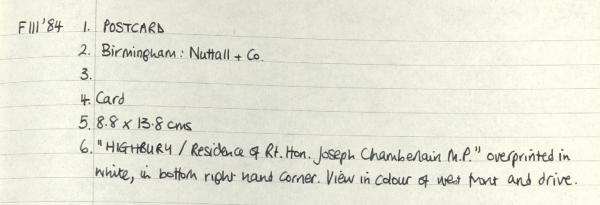 F III '84 1. POSTCARD
2. Birmingham: Nuttall + Co.
3.
4. Card
5. 8.8 x 13.8 cms
6. "HIGHBURY / Residence of Rt. Hon. Joseph Chamberlain M.P." overprinted in
white, in bottom right hand corner. View in colour of west front and drive.